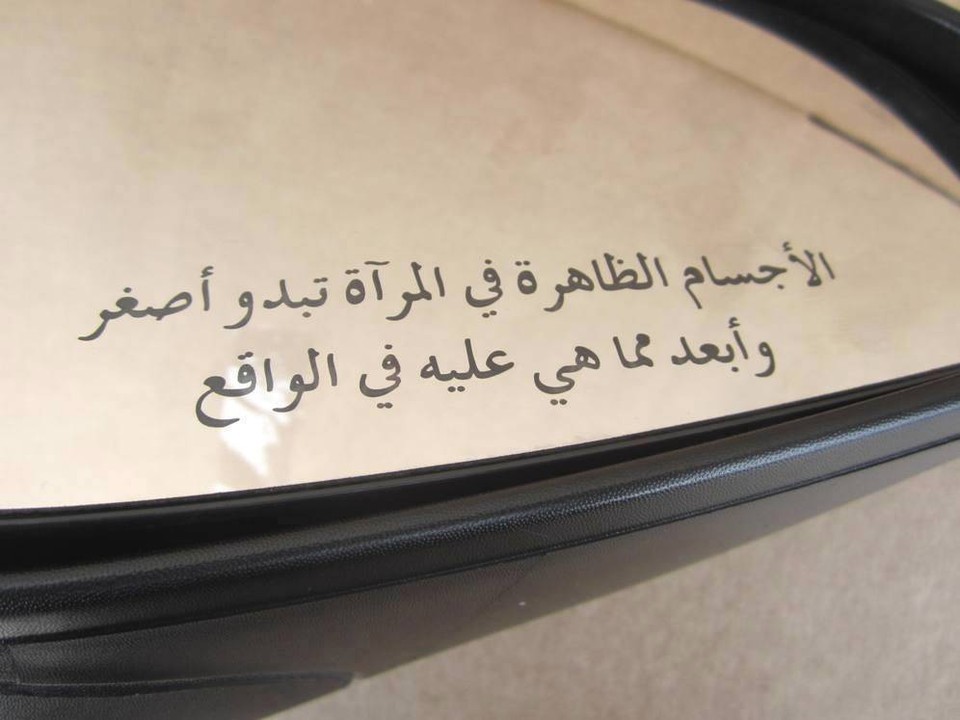 الأجسام الظاهرة في المرآة تبدو أصغر
وأبعد مما هي عليه في الواقع